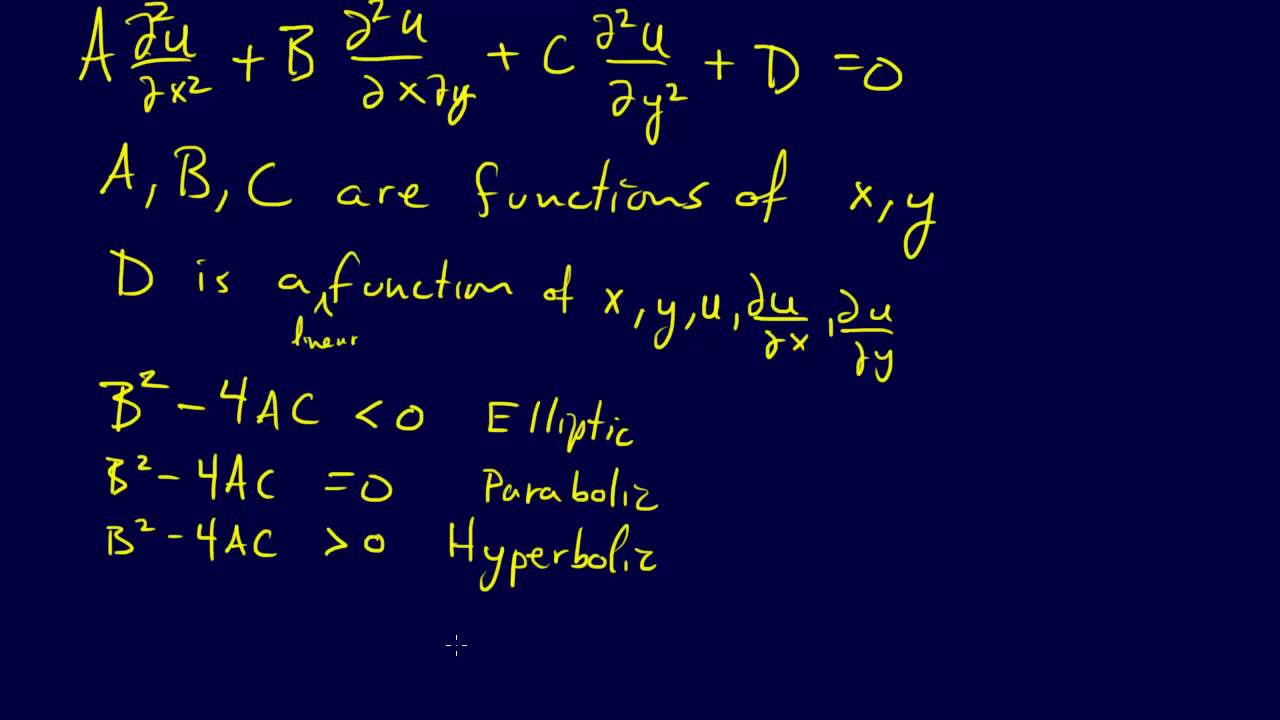 A ∂²u/∂x² + B ∂²u/∂x∂y + C ∂²u/∂y² + D = 0
A, B, C are functions of x, y
D is a function of x, y, u, ∂u/∂x, ∂u/∂y
linear
B² - 4AC < 0 Elliptic
B² - 4AC = 0 Parabolic
B² - 4AC > 0 Hyperbolic